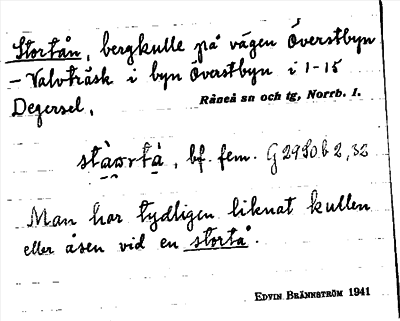 Stortån, bergkulle på vägen Överstbyn
– Valvträsk i byn Överstbyn i 1-15
Degersel.
Råneå sn och tg, Norrb. l.
bf. fem. G2950b2,33
Man har tydligen liknat kullen
eller åsen vid en stortå.
EDVIN BRÄNNSTRÖM 1941